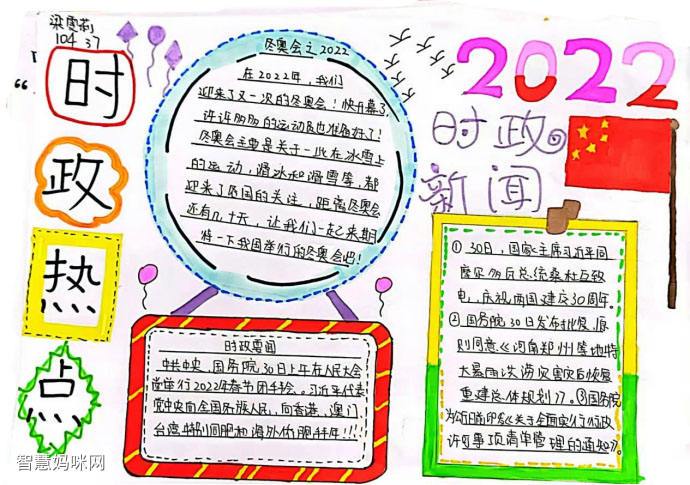 104 37
时
政
热
点
冬奥会之2022
在2022年,我们
迎来了又一次的冬奥会!快开幕了,
许许多多的运动员也准备好了!
冬奥会主要是关于一些在冰雪上
的运动,滑冰和滑雪等,都
迎来了各国的关注,距离冬奥会
还有几十天,让我们一起来期
待一下我国举行的冬奥会吧!
2022
时政
新闻
时政要闻
中共中央、国务院30日上午在人民大会
堂举行2022年春节团拜会。习近平代表
党中央向全国各族人民,向香港、澳门、
台湾 同胞和海外侨胞拜年!!!
①30日,国家主席习近平同
摩尔多瓦总统桑杜互致
电,庆祝两国建交30周年。
②国务院30日发布批复,原
则同意《河南郑州等地特
大暴雨洪涝灾害灾后恢复
重建总体规划》。③国务院
办公厅日前印发《关于全面实行行政
许可事项清单管理的通知》。
智慧妈咪网